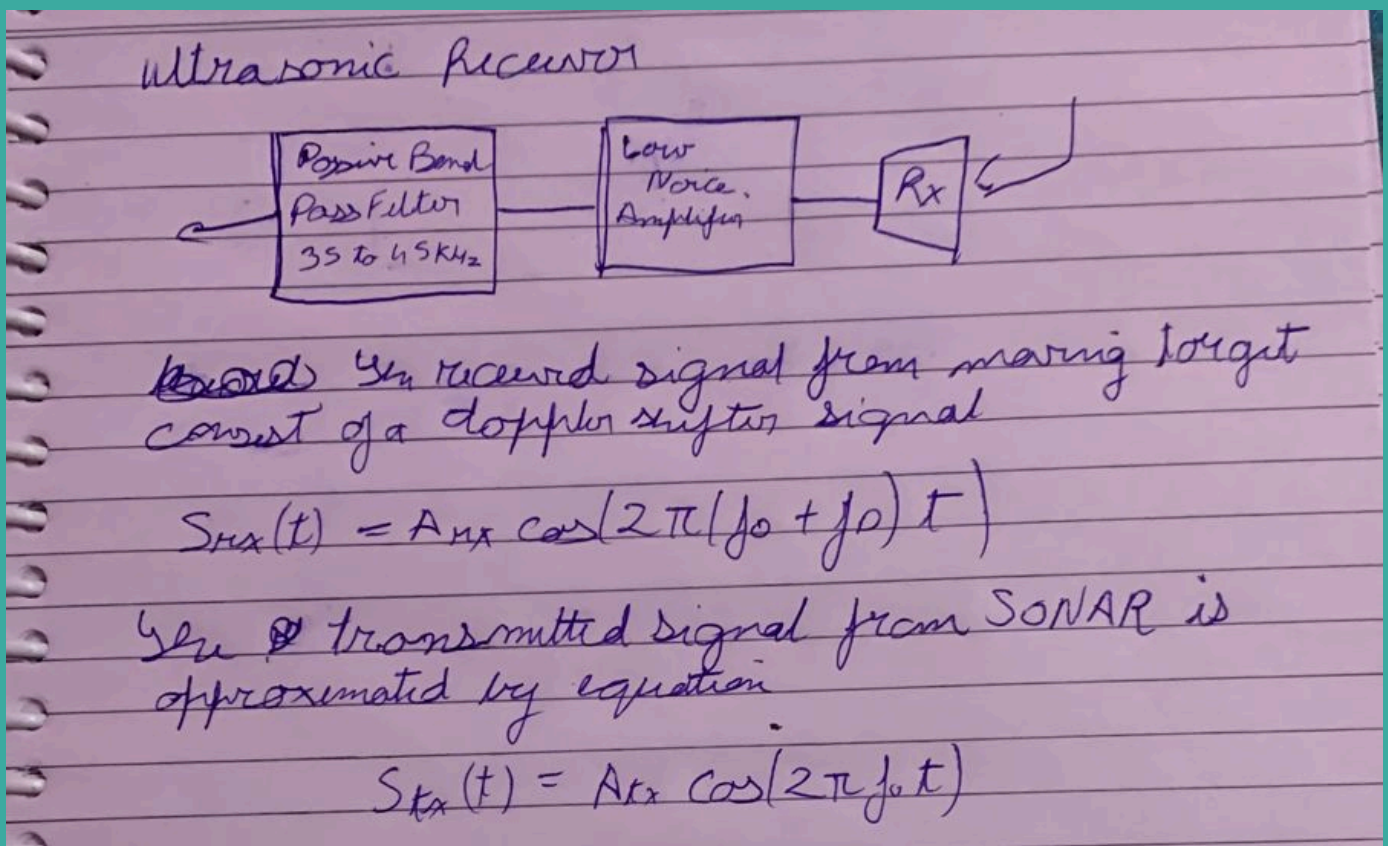 Ultrasonic Receiver
Passive Band
Pass Filter
35 to 45 KHz
Low
Noice
Amplifier
Rx
The received signal from moving target
consist of a doppler shifter signal
Srx(t) = Arx cos(2π(f₀ + f_D) t)
The transmitted signal from SONAR is
approximated by equation
Stx(t) = Atx Cos(2π f₀ t)